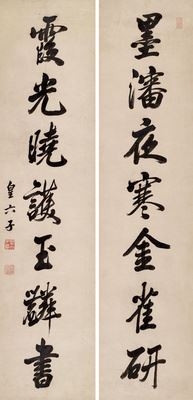 墨瀋夜寒金雀研
霞光曉護玉麟書
皇六子